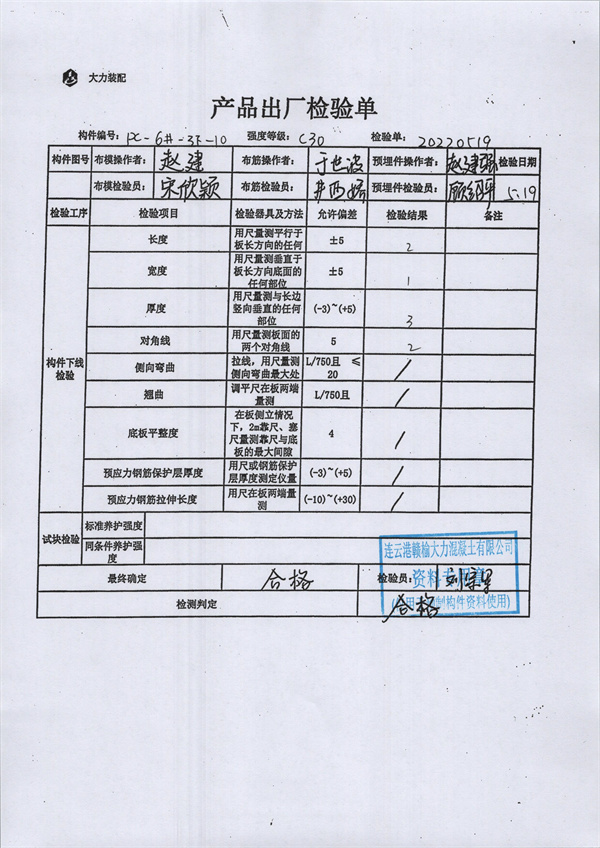 大力装配
产品出厂检验单
构件编号：PC-6#-3F-10 强度等级：C30 检验单：20220519
构件图号 布模操作者：赵建 布筋操作者：于世波 预埋件操作者：赵建强 检验日期
布模检验员：宋欣颖 布筋检验员： 预埋件检验员： 5.19
检验工序 检验项目 检验器具及方法 允许偏差 检验结果 备注
构件下线检验
长度 用尺量测平行于板长方向的任何 ±5 2
宽度 用尺量测垂直于板长方向底面的任何部位 ±5 1
厚度 用尺量测与长边竖向垂直的任何部位 (-3)~(+5) 3
对角线 用尺量测板面的两个对角线 5 2
侧向弯曲 拉线，用尺量测侧向弯曲最大处 L/750且 ≤20 /
翘曲 调平尺在板两端量测 L/750且 /
底板平整度 在板侧立情况下，2m靠尺、塞尺量测靠尺与底板的最大间隙 4 /
预应力钢筋保护层厚度 用尺或钢筋保护层厚度测定仪量 (-3)~(+5) /
预应力钢筋拉伸长度 用尺在板两端量测 (-10)~(+30) /
试块检验 标准养护强度
同条件养护强度
最终确定 合格 检验员：
检测判定 合格
连云港赣榆大力混凝土有限公司
资料专用章
构件资料使用)